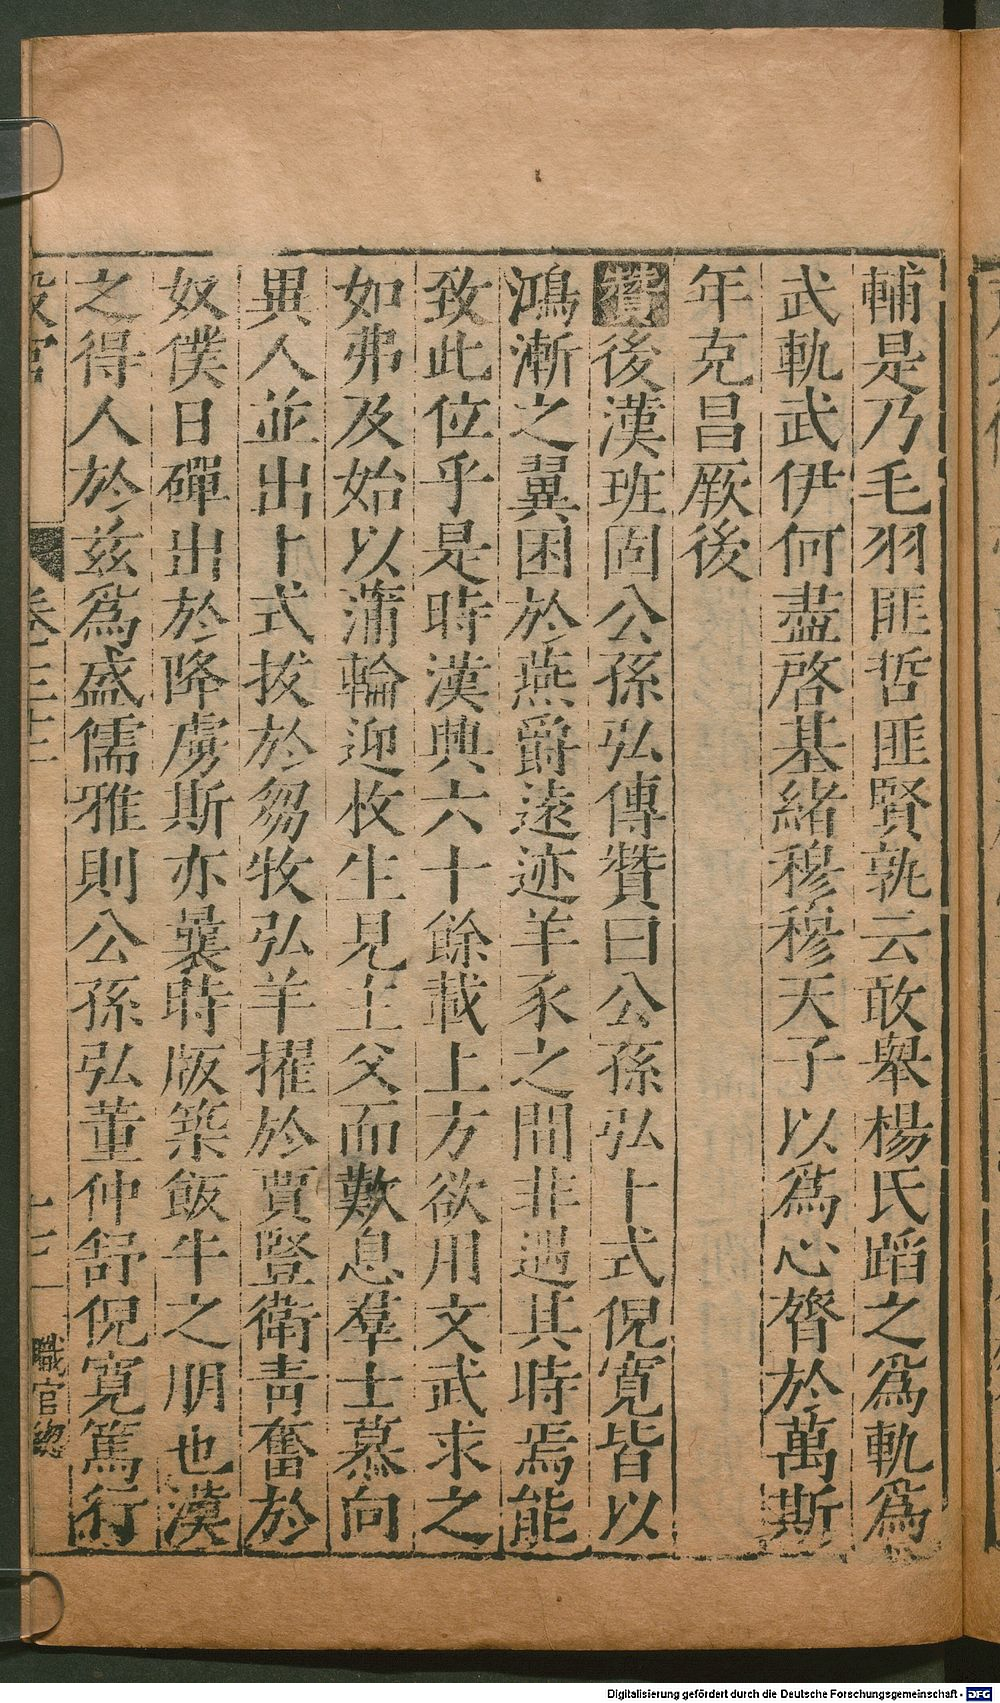 輔是乃毛羽匪哲匪賢孰云敢舉楊氏蹈之爲軌爲
武軌武伊何盡啓基緒穆穆天子以爲心膂於萬斯
年克昌厥後
贊後漢班固公孫弘傳贊曰公孫弘卜式倪寬皆以
鴻漸之翼困於燕爵遠迹羊豕之間非遇其時焉能
致此位乎是時漢興六十餘載上方欲用文武求之
如弗及始以蒲輪迎枚生見主父而歎息羣士慕向
異人並出卜式拔於芻牧弘羊擢於賈豎衛靑奮於
奴僕日磾出於降虜斯亦曩時版築飯牛之朋也漢
之得人於兹爲盛儒雅則公孫弘董仲舒倪寬篤行
設官 卷二三 十三 職官總
Digitalisierung gefördert durch die Deutsche Forschungsgemeinschaft - DFG